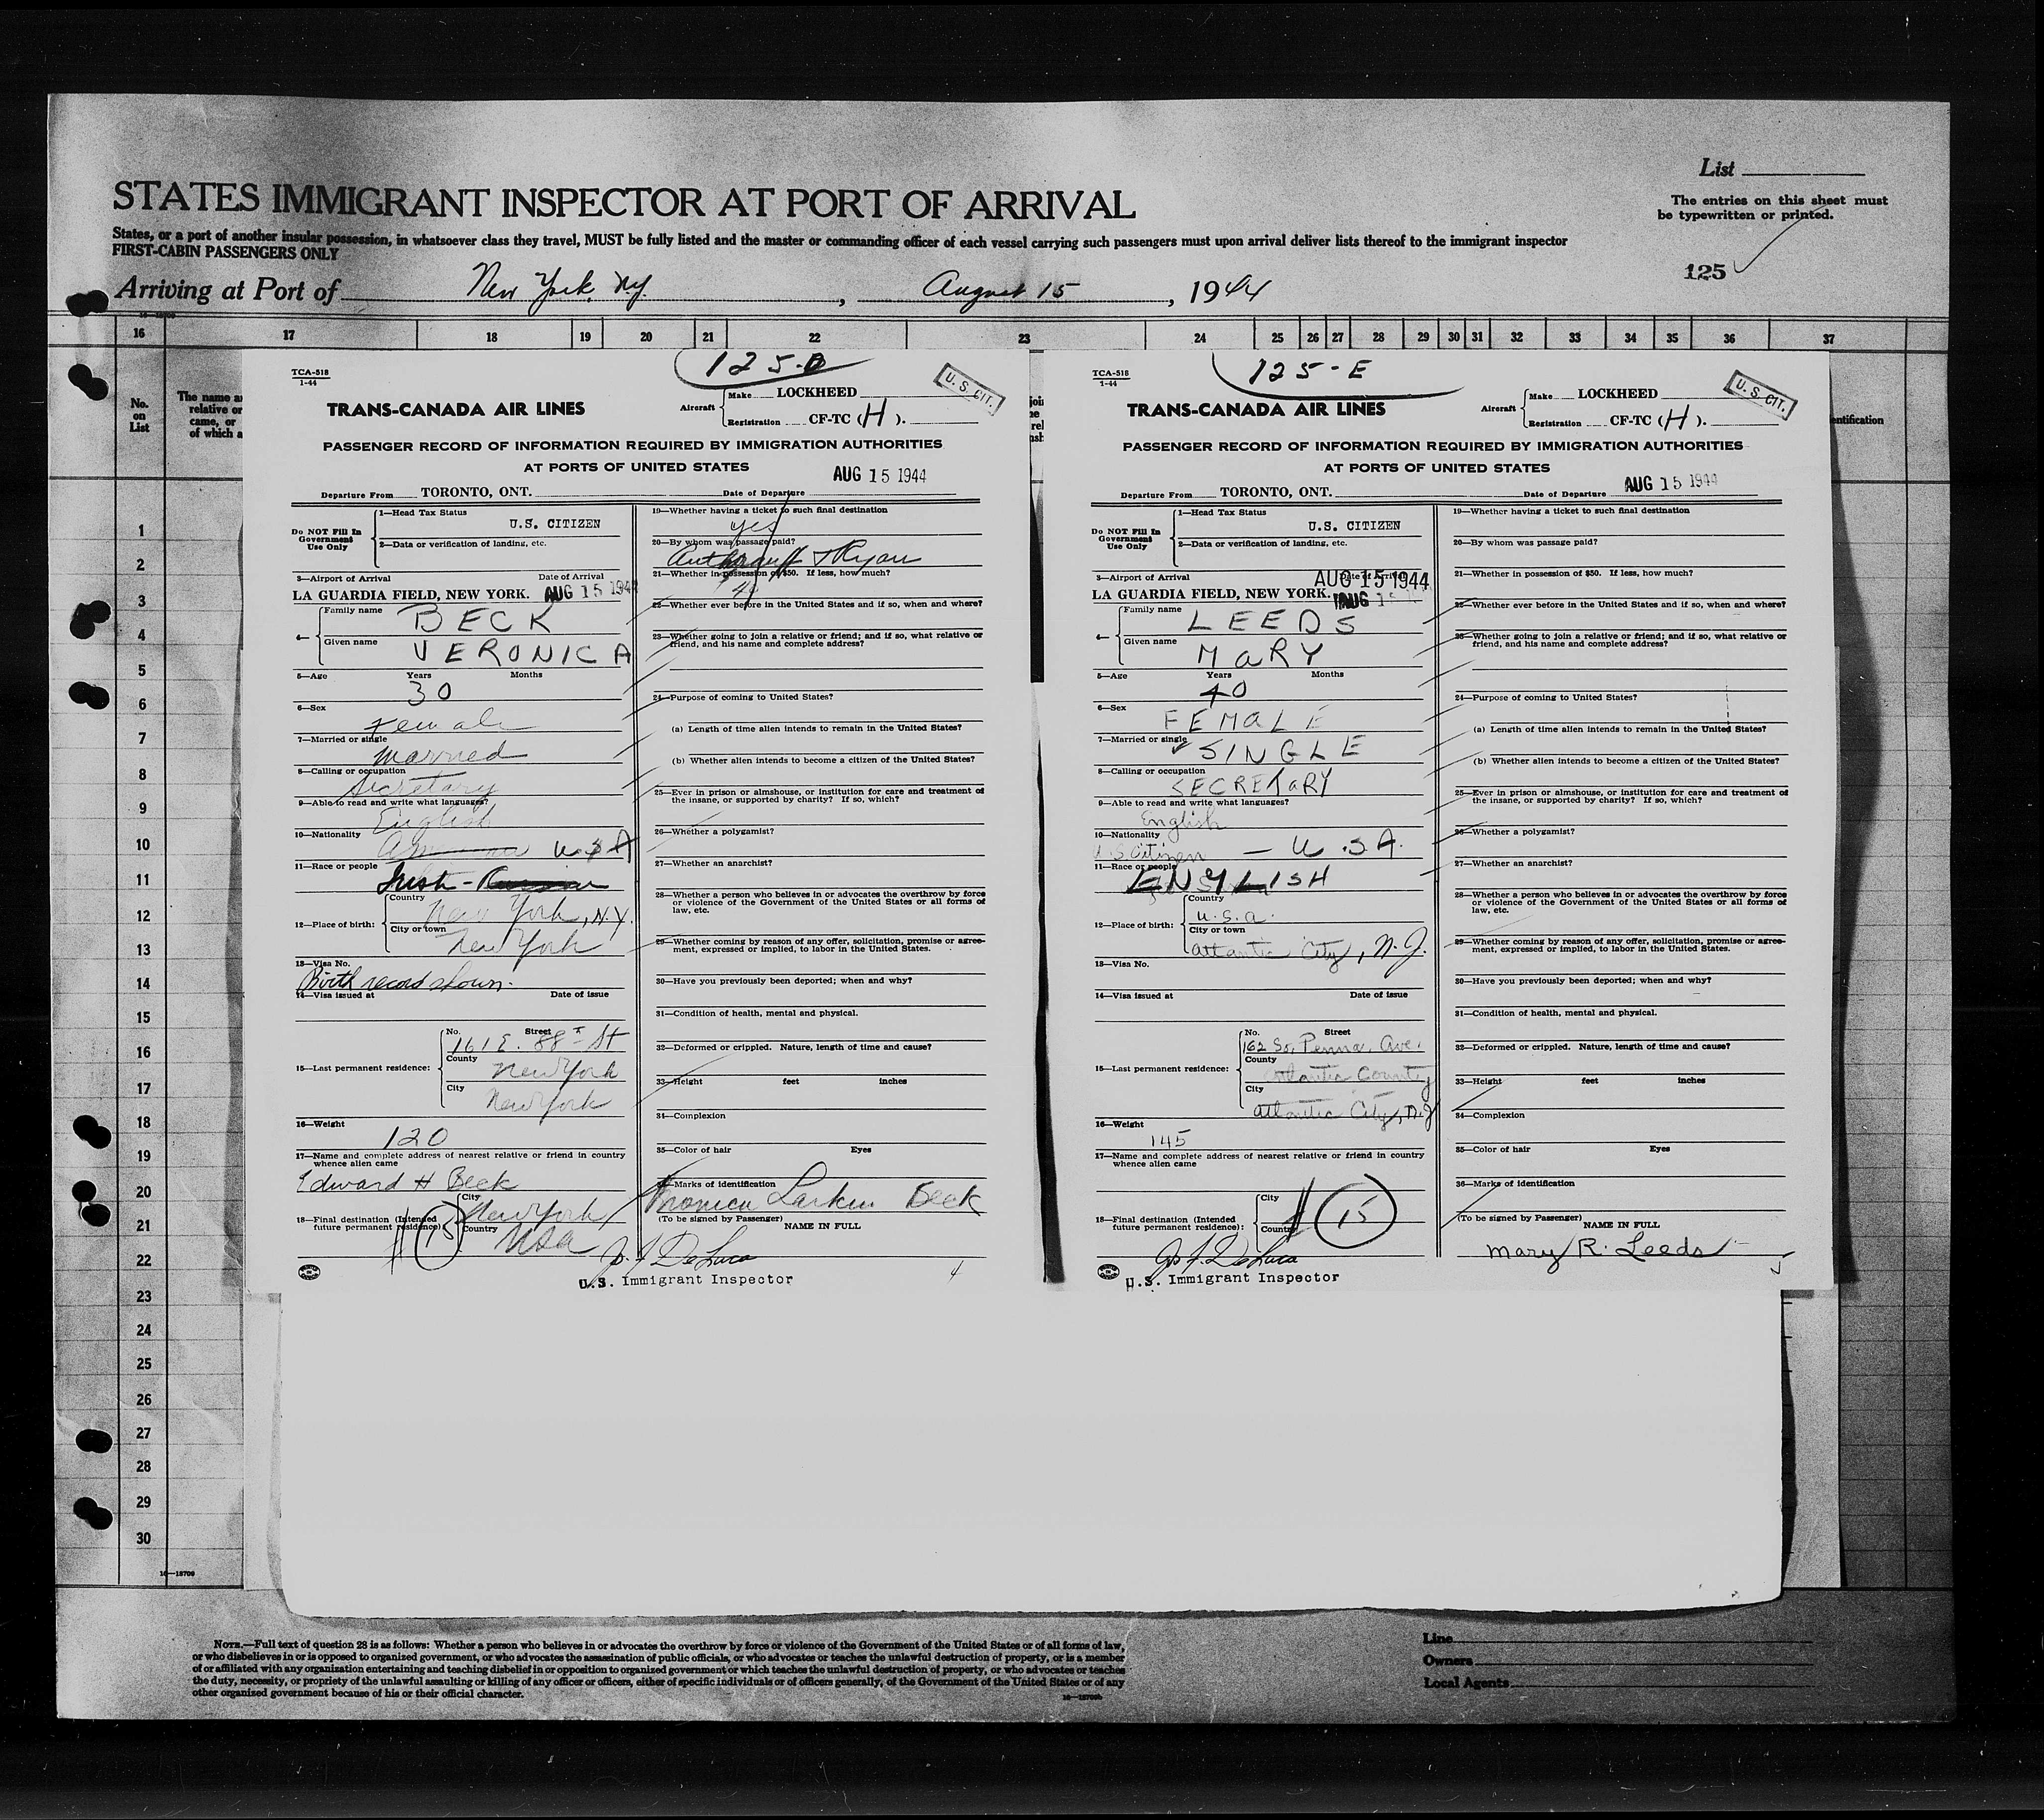 List
STATES IMMIGRANT INSPECTOR AT PORT OF ARRIVAL
The entries on this sheet must
be typewritten or printed.
States, or a port of another insular possession, in whatsoever class they travel, MUST be fully listed and the master or commanding officer of each vessel carrying such passengers must upon arrival deliver lists thereof to the immigrant inspector
FIRST-CABIN PASSENGERS ONLY
125
Arriving at Port of New York, N.Y., August 15, 1944
16 17 18 19 20 21 22 23 24 25 26 27 28 29 30 31 32 33 34 35 36 37
No.
on
List
The name a
relative or
came, or
of which a
entification
1
2
3
4
5
6
7
8
9
10
11
12
13
14
15
16
17
18
19
20
21
22
23
24
25
26
27
28
29
30
125-D
U. S. CIT.
TCA-518
1-44
TRANS-CANADA AIR LINES
Aircraft
Make LOCKHEED
Registration CF-TC (H).
PASSENGER RECORD OF INFORMATION REQUIRED BY IMMIGRATION AUTHORITIES
AT PORTS OF UNITED STATES
AUG 15 1944
Departure From TORONTO, ONT. Date of Departure
Do NOT Fill In
Government
Use Only
1—Head Tax Status
U.S. CITIZEN
2—Data or verification of landing, etc.
3—Airport of Arrival Date of Arrival
LA GUARDIA FIELD, NEW YORK. AUG 15 1944
4—
Family name
BECK
Given name
VERONICA
5—Age Years Months
30
6—Sex
Female
7—Married or single
Married
8—Calling or occupation
Secretary
9—Able to read and write what languages?
English
10—Nationality
USA
11—Race or people
Irish-
12—Place of birth:
Country
New York, N.Y.
City or town
New York
13—Visa No.
Birth record shown.
14—Visa issued at Date of issue
15—Last permanent residence:
No. Street
161 E. 88th St
County
New York
City
New York
16—Weight
120
17—Name and complete address of nearest relative or friend in country
whence alien came
Edward H Beck
18—Final destination (Intended
future permanent residence):
City
New York
Country
USA
15
U.S. Immigrant Inspector
19—Whether having a ticket to such final destination
yes
20—By whom was passage paid?
& Ryan
21—Whether in possession of $50. If less, how much?
22—Whether ever before in the United States and if so, when and where?
23—Whether going to join a relative or friend; and if so, what relative or
friend, and his name and complete address?
24—Purpose of coming to United States?
(a) Length of time alien intends to remain in the United States?
(b) Whether alien intends to become a citizen of the United States?
25—Ever in prison or almshouse, or institution for care and treatment of
the insane, or supported by charity? If so, which?
26—Whether a polygamist?
27—Whether an anarchist?
28—Whether a person who believes in or advocates the overthrow by force
or violence of the Government of the United States or all forms of
law, etc.
29—Whether coming by reason of any offer, solicitation, promise or agree-
ment, expressed or implied, to labor in the United States.
30—Have you previously been deported; when and why?
31—Condition of health, mental and physical.
32—Deformed or crippled. Nature, length of time and cause?
33—Height feet inches
34—Complexion
35—Color of hair Eyes
36—Marks of identification
Veronica Larkin Beck
(To be signed by Passenger) NAME IN FULL
125-E
U. S. CIT.
TCA-518
1-44
TRANS-CANADA AIR LINES
Aircraft
Make LOCKHEED
Registration CF-TC (H).
PASSENGER RECORD OF INFORMATION REQUIRED BY IMMIGRATION AUTHORITIES
AT PORTS OF UNITED STATES
AUG 15 1944
Departure From TORONTO, ONT. Date of Departure
Do NOT Fill In
Government
Use Only
1—Head Tax Status
U.S. CITIZEN
2—Data or verification of landing, etc.
3—Airport of Arrival Date of Arrival
AUG 15 1944
LA GUARDIA FIELD, NEW YORK. AUG 15
4—
Family name
LEEDS
Given name
MARY
5—Age Years Months
40
6—Sex
FEMALE
7—Married or single
SINGLE
8—Calling or occupation
SECRETARY
9—Able to read and write what languages?
English
10—Nationality
U.S. Citizen — U.S.A.
11—Race or people
ENGLISH
12—Place of birth:
Country
U.S.A.
City or town
Atlantic City, N.J.
13—Visa No.
14—Visa issued at Date of issue
15—Last permanent residence:
No. Street
162 So. Penna. Ave.
County
Atlantic County
City
Atlantic City, N.J.
16—Weight
145
17—Name and complete address of nearest relative or friend in country
whence alien came
18—Final destination (Intended
future permanent residence):
City
Country
15
U.S. Immigrant Inspector
19—Whether having a ticket to such final destination
20—By whom was passage paid?
21—Whether in possession of $50. If less, how much?
22—Whether ever before in the United States and if so, when and where?
23—Whether going to join a relative or friend; and if so, what relative or
friend, and his name and complete address?
24—Purpose of coming to United States?
(a) Length of time alien intends to remain in the United States?
(b) Whether alien intends to become a citizen of the United States?
25—Ever in prison or almshouse, or institution for care and treatment of
the insane, or supported by charity? If so, which?
26—Whether a polygamist?
27—Whether an anarchist?
28—Whether a person who believes in or advocates the overthrow by force
or violence of the Government of the United States or all forms of
law, etc.
29—Whether coming by reason of any offer, solicitation, promise or agree-
ment, expressed or implied, to labor in the United States.
30—Have you previously been deported; when and why?
31—Condition of health, mental and physical.
32—Deformed or crippled. Nature, length of time and cause?
33—Height feet inches
34—Complexion
35—Color of hair Eyes
36—Marks of identification
(To be signed by Passenger) NAME IN FULL
Mary R. Leeds
NOTE.—Full text of question 28 is as follows: Whether a person who believes in or advocates the overthrow by force or violence of the Government of the United States or of all forms of law,
or who disbelieves in or is opposed to organized government, or who advocates the assassination of public officials, or who advocates or teaches the unlawful destruction of property, or is a member
of or affiliated with any organization entertaining and teaching disbelief in or opposition to organized government or which teaches the unlawful destruction of property, or who advocates or teaches
the duty, necessity, or propriety of the unlawful assaulting or killing of any officer or officers, either of specific individuals or of officers generally, of the Government of the United States or of any
other organized government because of his or their official character.
Line
Owners
Local Agents